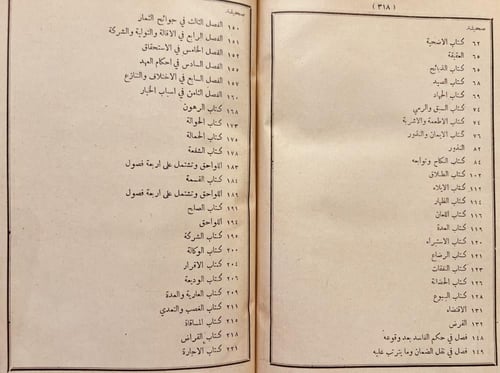 ( ٣١٨ )
صحيفة
٦٢ كتاب الاضحية
٦٥ العقيقة
٦٥ كتاب الذبائح
٦٨ كتاب الصيد
٦٩ كتاب الجهاد
٧٤ كتاب السبق والرمي
٧٤ كتاب الاطعمة والاشربة
٧٦ كتاب الايمان والنذور
٨٢ النذور
٨٤ كتاب النكاح وتوابعه
١٠٢ كتاب الطلاق
١١٢ كتاب الايلاء
١١٤ كتاب الظهار
١١٦ كتاب اللعان
١١٩ كتاب العدة
١٢٠ كتاب الاستبراء
١٢١ كتاب الرضاع
١٢٣ كتاب النفقات
١٢٥ كتاب الحضانة
١٢٨ كتاب البيوع
١٣١ الاقتضاء
١٣٢ القرض
١٤٨ فصل في حكم الفاسد بعد وقوعه
١٤٩ فصل في نقل الضمان وما يترتب عليه
صحيفة
١٥٠ الفصل الثالث في جوائح الثمار
١٥١ الفصل الرابع في الاقالة والتولية والشركة
١٥٢ الفصل الخامس في الاستحقاق
١٥٥ الفصل السادس في احكام العهد
١٥٧ الفصل السابع في الاختلاف والتنازع
١٦٠ الفصل الثامن في اسباب الخيار
١٦٨ كتاب الرهون
١٧٣ كتاب الحوالة
١٧٥ كتاب الحمالة
١٧٨ كتاب الشفعة
١٨٣ اللواحق وتشتمل على اربعة فصول
١٨٤ كتاب القسمة
١٨٩ اللواحق وتشتمل على اربعة فصول
١٩١ كتاب الصلح
١٩٤ اللواحق
١٩٥ كتاب الشركة
٢٠٠ كتاب الوكالة
٢٠٤ كتاب الاقرار
٢٠٦ كتاب الوديعة
٢٠٩ كتاب العارية والعدة
٢١١ كتاب الغصب والتعدي
٢١٥ كتاب المساقاة
٢١٨ كتاب القراض
٢٢١ كتاب الاجارة